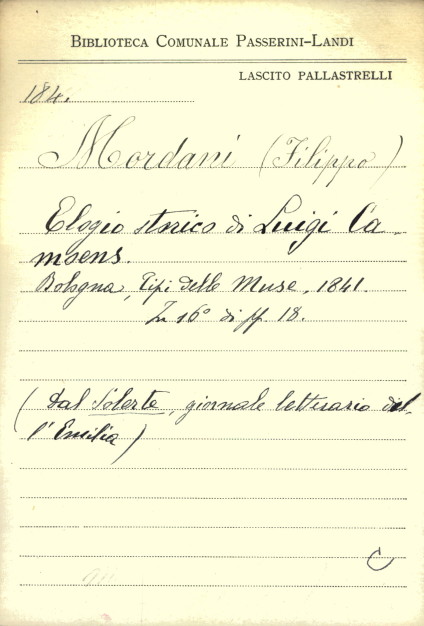 BIBLIOTECA COMUNALE PASSERINI-LANDI
LASCITO PALLASTRELLI
184.
Mordani (Filippo)
Elogio storico di Luigi Ca-
moens.
Bologna, Tipi delle Muse, 1841.
In 16° di pp. 18.
(Dal Solerte, giornale letterario del-
l'Emilia)
C